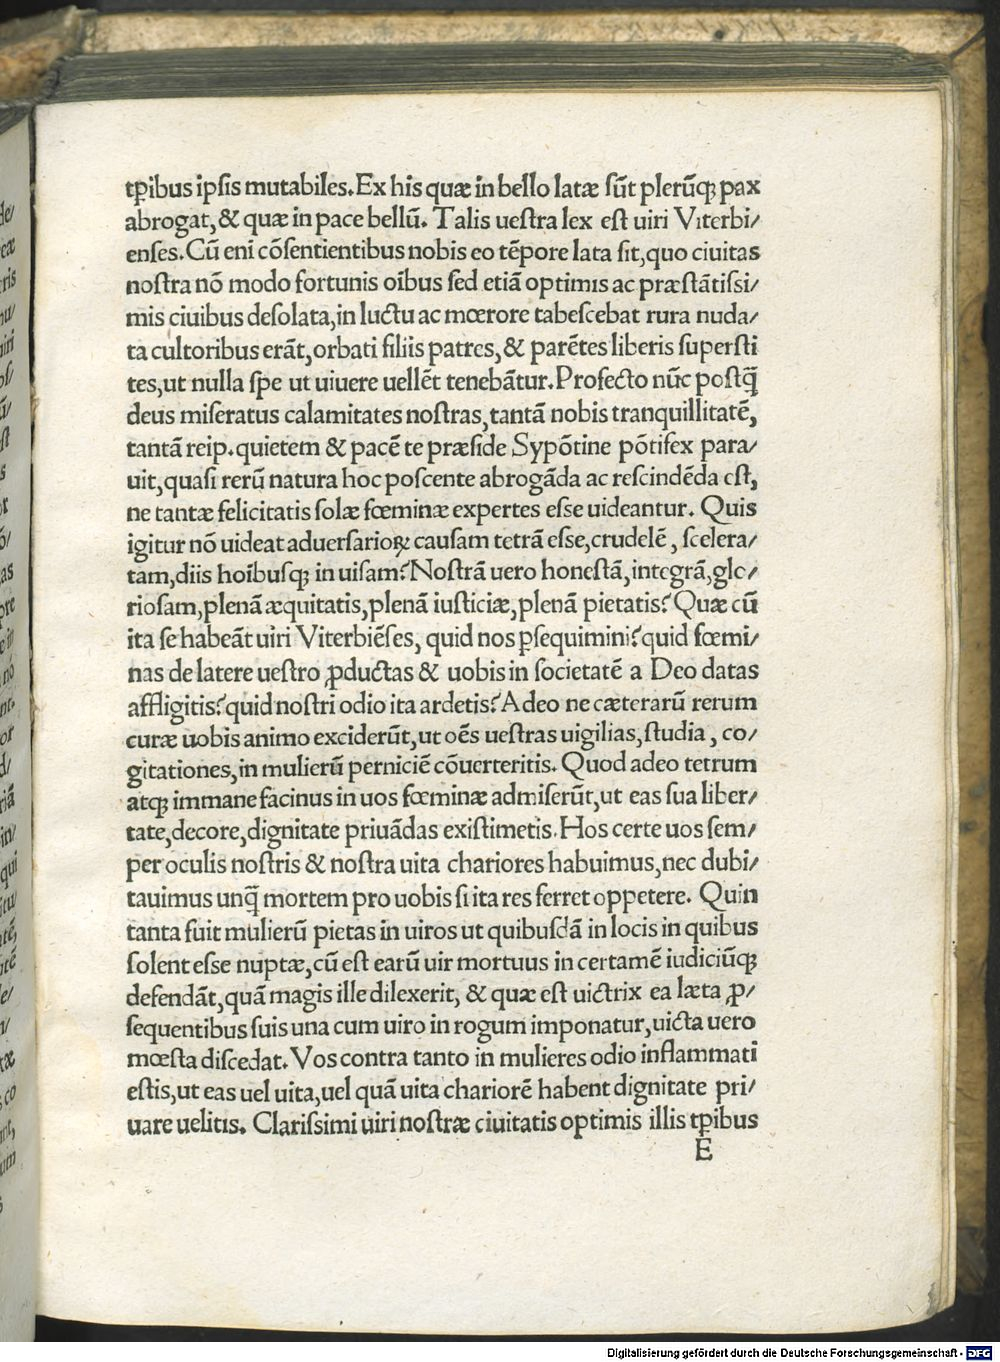 tꝑibus ipſis mutabiles. Ex his quæ in bello latæ ſūt plerūqꝫ pax
abrogat, & quæ in pace bellū. Talis ueſtra lex eſt uiri Viterbi/
enſes. Cū eni cōſentientibus nobis eo tēpore lata ſit, quo ciuitas
noſtra nō modo fortunis oībus ſed etiā optimis ac præſtātiſſi/
mis ciuibus deſolata, in luctu ac mœrore tabeſcebat rura nuda/
ta cultoribus erāt, orbati filiis patres, & parētes liberis ſuperſti
tes, ut nulla ſpe ut uiuere uellēt tenebātur. Profecto nūc poſtq̄
deus miſeratus calamitates noſtras, tantā nobis tranquillitatē,
tantā reip. quietem & pacē te præſide Sypōtine pōtifex para/
uit, quaſi rerū natura hoc poſcente abrogāda ac reſcindēda eſt,
ne tantæ felicitatis ſolæ fœminæ expertes eſſe uideantur. Quis
igitur nō uideat aduerſarioꝝ cauſam tetrā eſſe, crudelē, ſcelera/
tam, diis hoībuſqꝫ in uiſam? Noſtrā uero honeſtā, integrā, glo/
rioſam, plenā æquitatis, plenā iuſticiæ, plenā pietatis? Quæ cū
ita ſe habeāt uiri Viterbiēſes, quid nos ꝑſequimini? quid fœmi/
nas de latere ueſtro ꝓductas & uobis in ſocietatē a Deo datas
affligitis? quid noſtri odio ita ardetis? Adeo ne cæterarū rerum
curæ uobis animo exciderūt, ut oēs ueſtras uigilias, ſtudia, co/
gitationes, in mulierū perniciē cōuerteritis. Quod adeo tetrum
atqꝫ immane facinus in uos fœminæ admiſerūt, ut eas ſua liber/
tate, decore, dignitate priuādas exiſtimetis. Hos certe uos ſem/
per oculis noſtris & noſtra uita chariores habuimus, nec dubi/
tauimus unq̄ mortem pro uobis ſi ita res ferret oppetere. Quin
tanta fuit mulierū pietas in uiros ut quibuſdā in locis in quibus
ſolent eſſe nuptæ, cū eſt earū uir mortuus in certamē iudiciūqꝫ
defendāt, quā magis ille dilexerit, & quæ eſt uictrix ea læta ꝓ/
ſequentibus ſuis una cum uiro in rogum imponatur, uicta uero
mœſta diſcedat. Vos contra tanto in mulieres odio inflammati
eſtis, ut eas uel uita, uel quā uita chariorē habent dignitate pri/
uare uelitis. Clariſſimi uiri noſtræ ciuitatis optimis illis tꝑibus
E
Digitalisierung gefördert durch die Deutsche Forschungsgemeinschaft - DFG